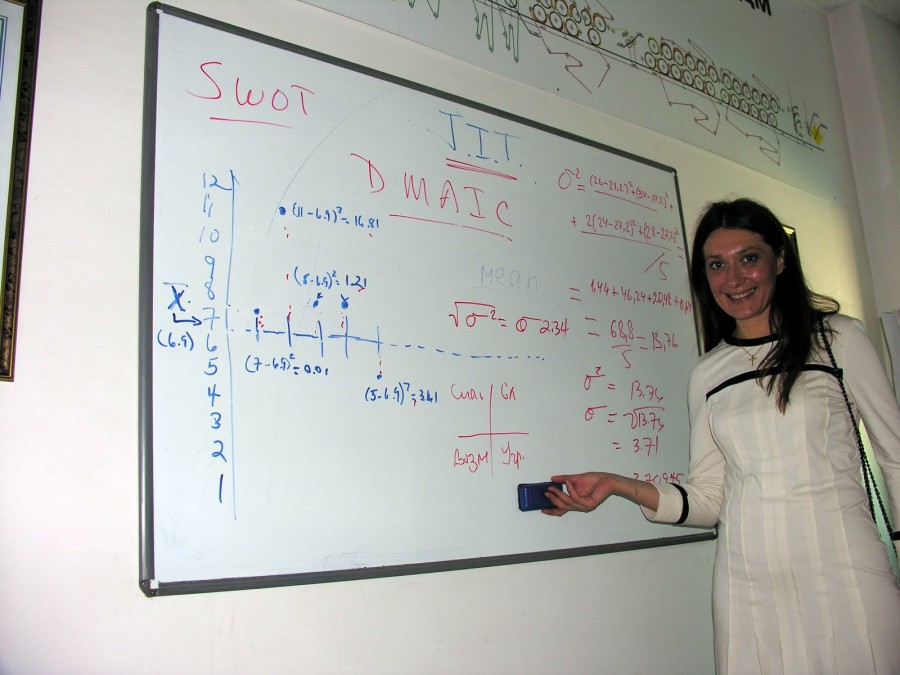 SWOT
J.I.T.
DMAIC
12
11
10
9
8
7
6
5
4
3
2
1
X̄
(6.9)
(11-6.9)²=16.81
(8-6.9)²=1.21
(7-6.9)²=0.01
(5-6.9)²=3.61
Mean
√σ²=σ 2.34
Сил Сл
Возм Угр.
σ²=(26-27,2)²+(34-27,2)²+
+2(24-27,2)²+(28-27,2)²=
/5
=1.44+46,24+20,48+0,64
=68,8=13,76
5
σ²=13.76
σ=√13.76
=3.71